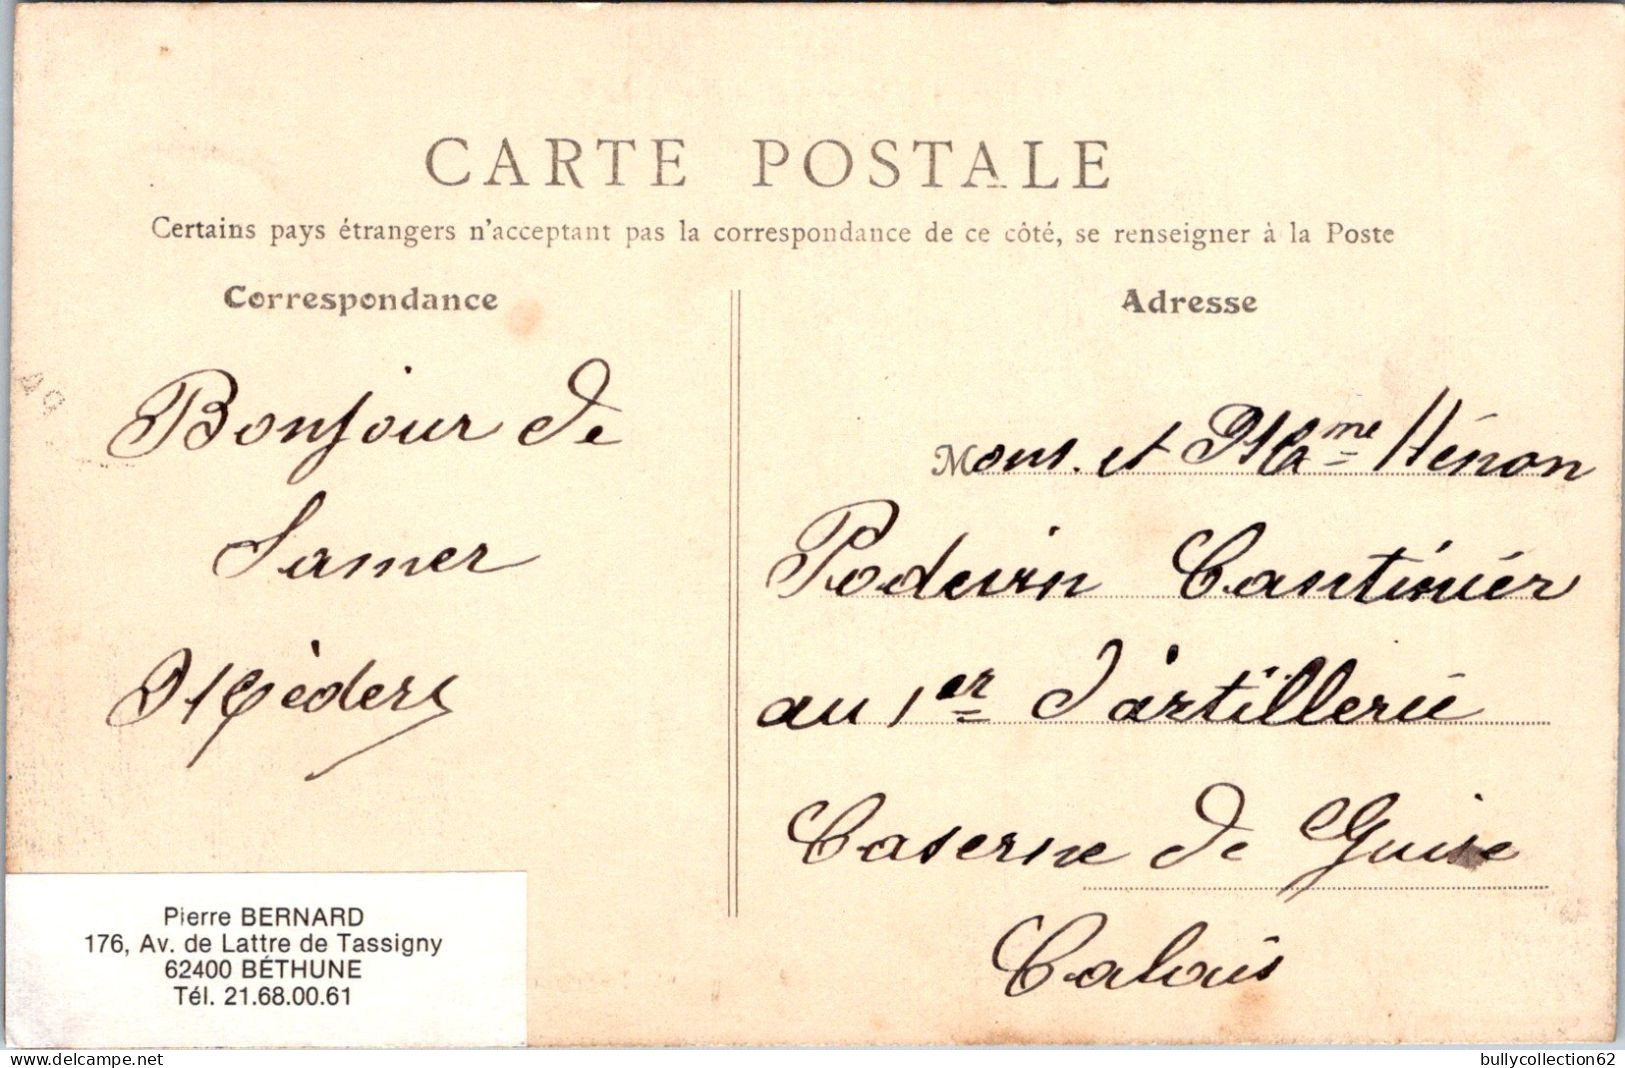 CARTE POSTALE
Certains pays étrangers n'acceptant pas la correspondance de ce côté, se renseigner à la Poste
Correspondance
Bonjour de
Samer
Adresse
Mons. et Mme Hénon
Podevin Cantinier
au 1er d'artillerie
Caserne de Guise
Calais
Pierre BERNARD
176, Av. de Lattre de Tassigny
62400 BÉTHUNE
Tél. 21.68.00.61
www.delcampe.net
bullycollection62